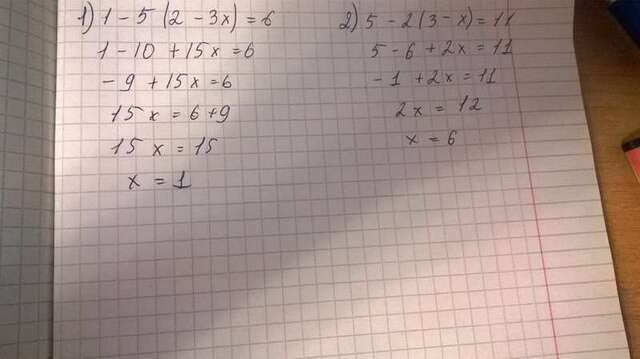 1) 1 - 5 (2 - 3x) = 6
1 - 10 + 15x = 6
- 9 + 15x = 6
15x = 6 + 9
15x = 15
x = 1
2) 5 - 2(3 - x) = 11
5 - 6 + 2x = 11
- 1 + 2x = 11
2x = 12
x = 6